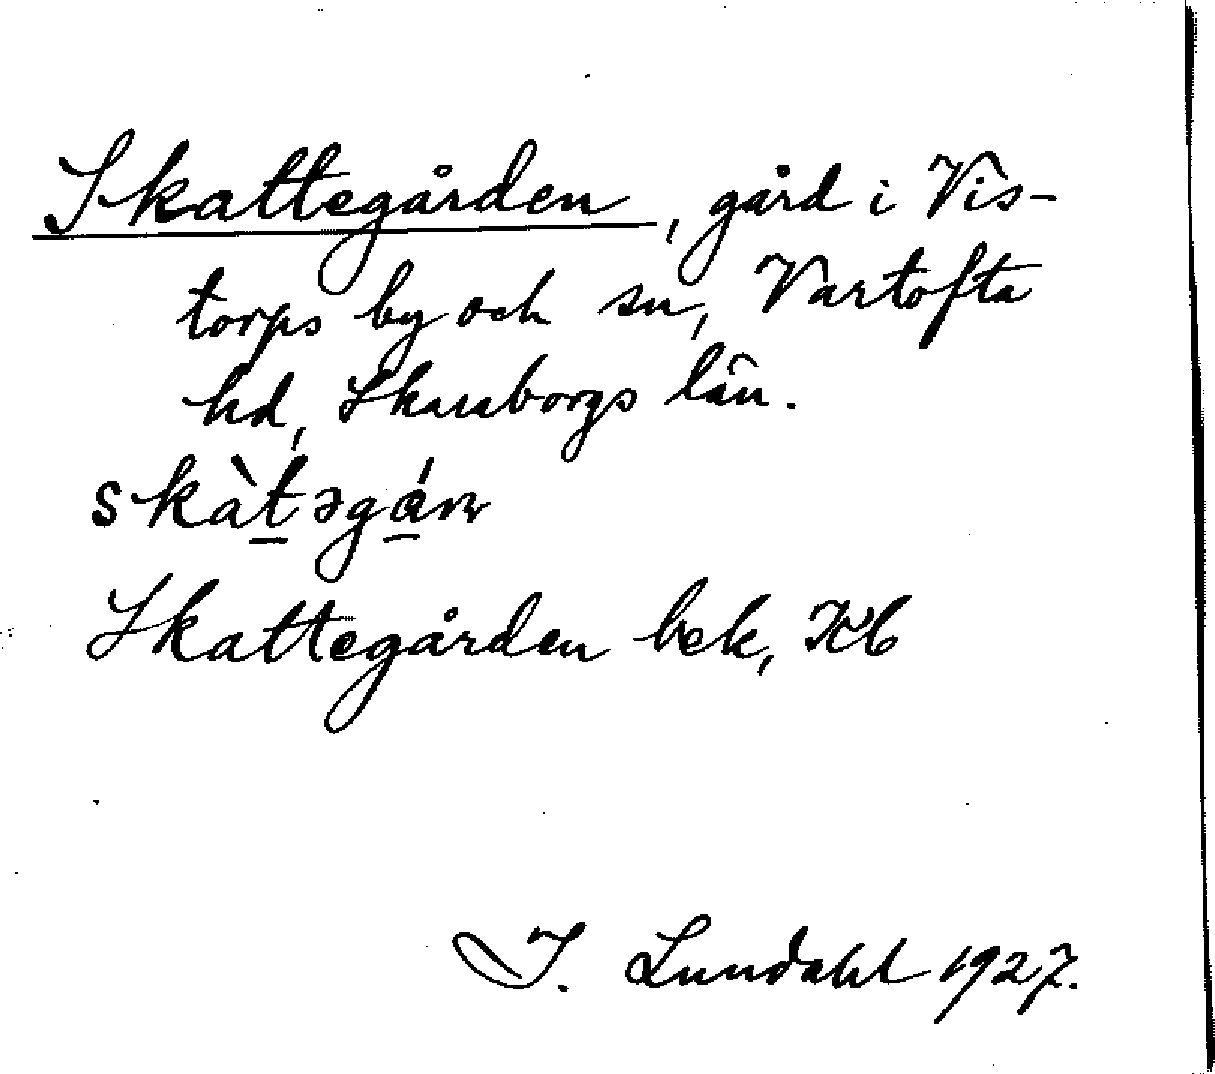 Skattegården, gård i Vis-
torps by och sn, Vartofta
hd, Skaraborgs län.
skàt̠əgá̠ɳ
Skattegården bek, Kb
I. Lundahl 1927.